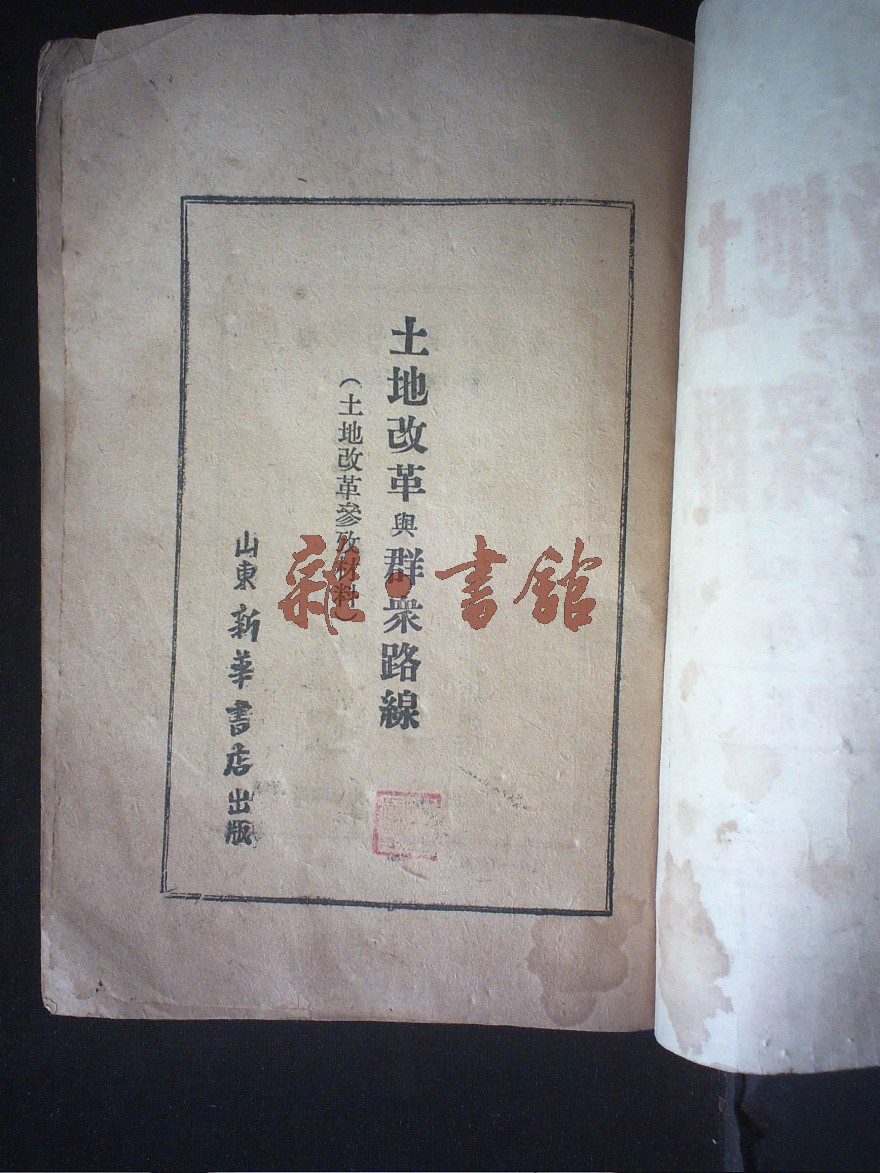 土地改革與群衆路線
(土地改革參攷材料)
山東新華書店出版
雜·書館